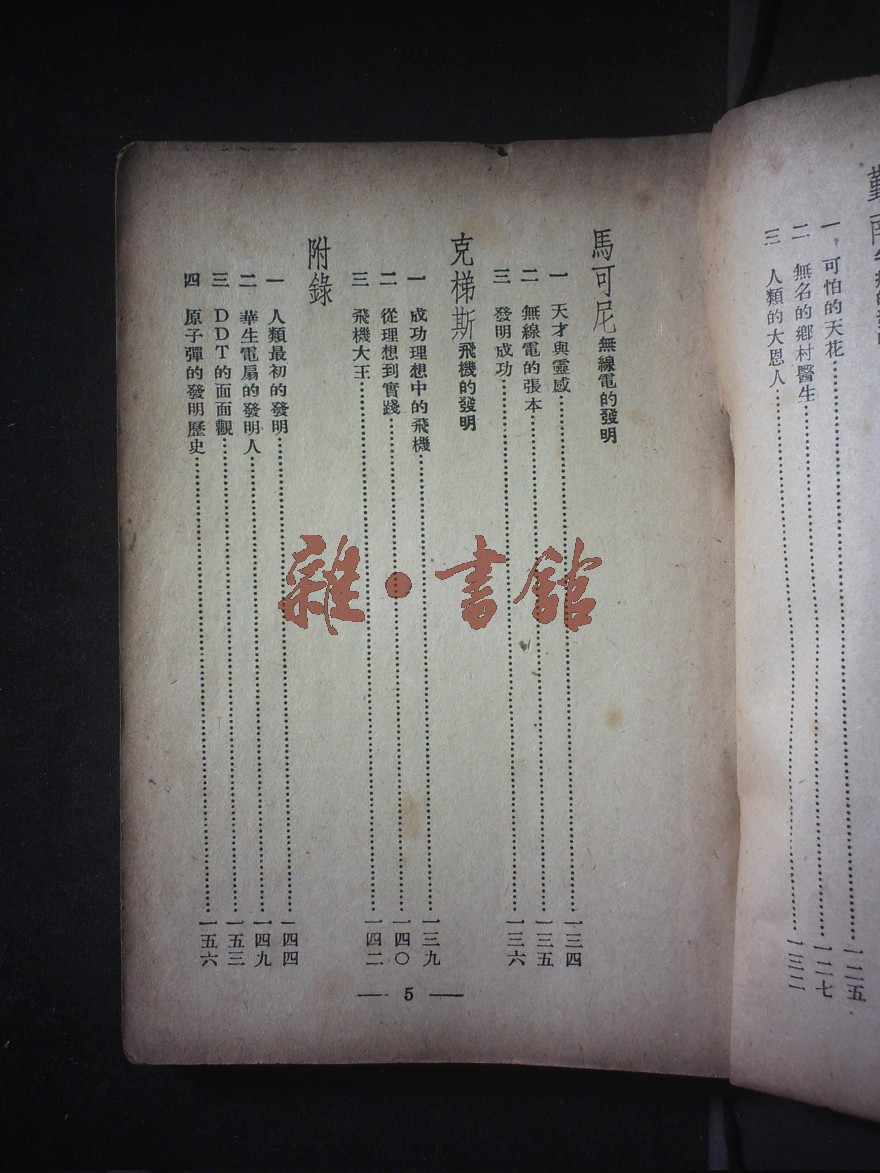 一 可怕的天花……一二五
二 無名的鄉村醫生……一二七
三 人類的大恩人……一三二
馬可尼 無線電的發明
一 天才與靈感……一三四
二 無線電的張本……一三五
三 發明成功……一三六
克梯斯 飛機的發明
一 成功理想中的飛機……一三九
二 從理想到實踐……一四〇
三 飛機大王……一四二
附錄
一 人類最初的發明……一四四
二 華生電扇的發明人……一四九
三 DDT的面面觀……一五三
四 原子彈的發明歷史……一五六
— 5 —
雜·書館